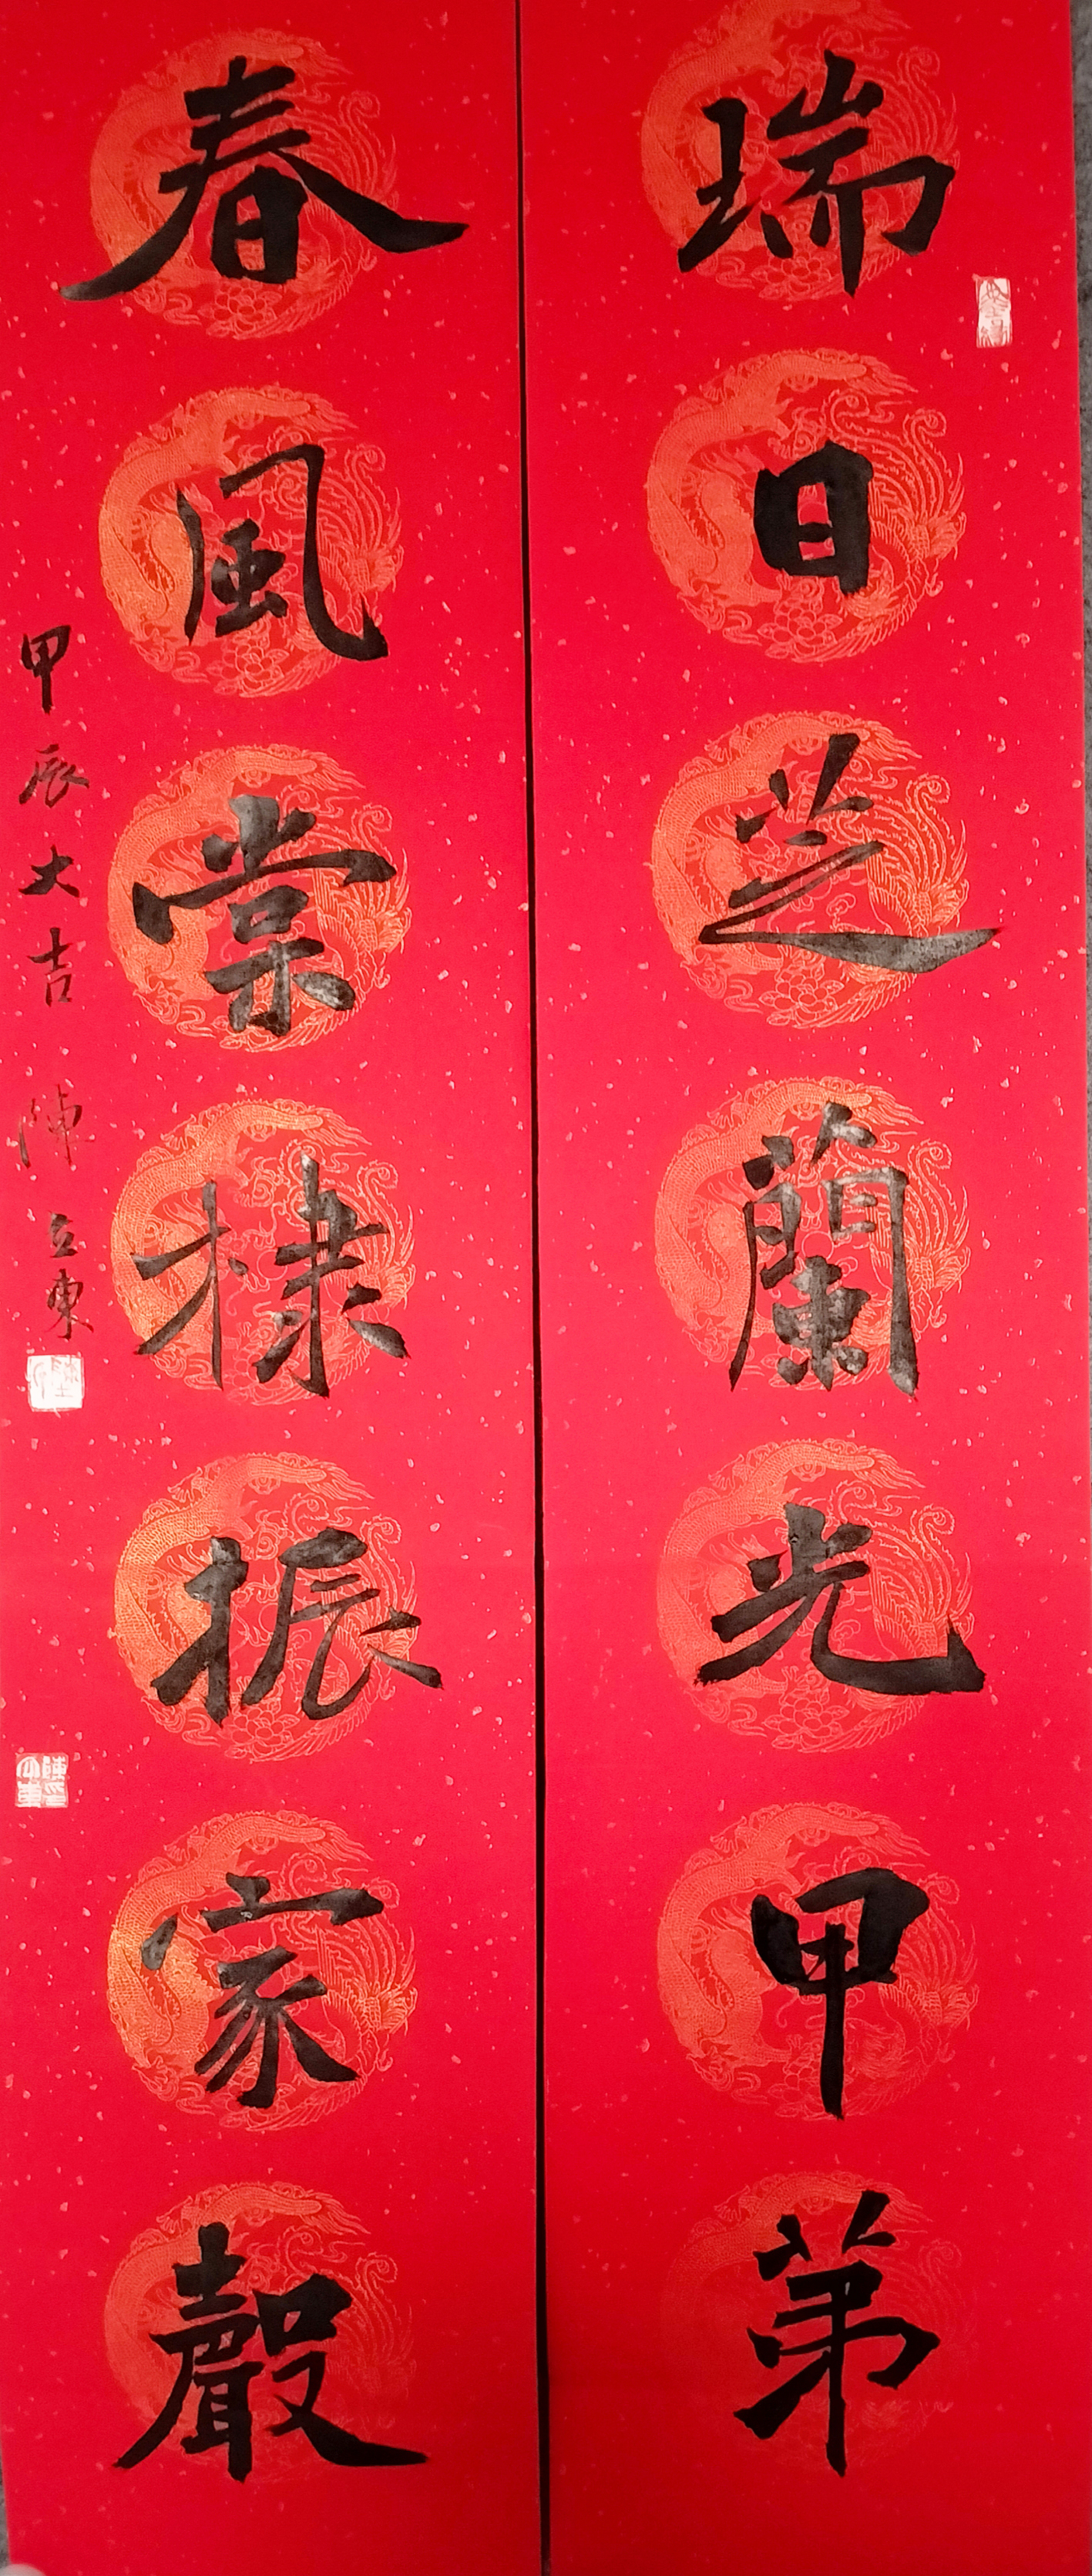 瑞日芝蘭光甲第
春風棠棣振家聲
甲辰大吉 陳立東